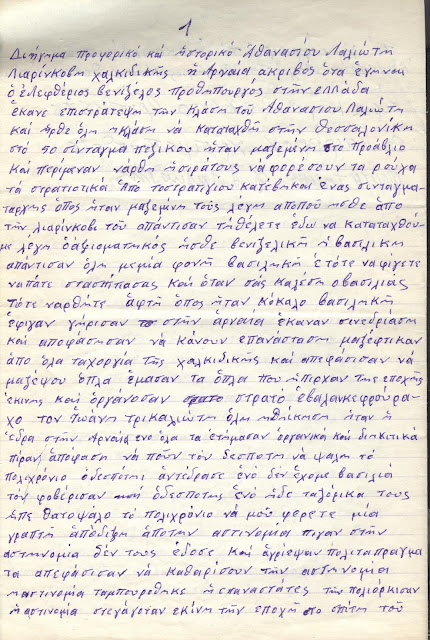 1
Διήγημα προφορικό και ηστορικό Ἀθανασίου Λαλιώτη
Λιαρίνκοβη χαλκιδικῆς ἡ Ἀρναία ακριβός ὅτα ἔγηναι
ὁ ἐλεφθέριος βενιζέλος προθηπουργος στην ελλάδα
ἔκανε επιστράτεψη την κλάση τοῦ Ἀθανασίου Λαλιώτη
και ἦρθε ὅλη ηκλάση νὰ καταταχθῆ στὴν θεσσαλονίκη
στὸ 50 σύνταγμα πεζικου ἦταν μαζεμένη στὸ προάβλιο
και περίμεναν νάρθη ἡσιράτους νὰ φορέσουν τα ρούχα
τὰ στρατιοτικά Ἀπό τοστρατηγίου κατέβηκαι ἕνας συνταγμα-
τάρχης ὅπος ἦταν μαζεμένη τοὺς λέγη ἀπόπού ησθε ἀπο
τὴν λιαρίνκοβι τοῦ απάντισαν τηθέλετε ἐδω νὰ καταταχθού-
με λέγη ὁἀξιοματηκός ησθε βενιζελικη ἡ βασιλικη
απάντισαν ὅλη μεμία φονη βασιληκη ἐ τότε νὰφίγετε
νὰπάτε στασπίτασας και ὅταν σας καλέση οβασιλιάς
τότε ναρθῆτε ἀφτη ὅπος ἦταν κόκαλο βασιλικη
ἔφιγαν γήρισαν στὴν ἀρναία ἔκαναν συνεδρίαση
και αποφάσησαν νὰ κάνουν επανάσταση μαζέφτικαν
ἀπο ὅλα ταχοργια τῆς χαλκιδικῆς και απεφάσισαν νὰ
μαζέψου ὅπλα ἔμασαν τα ὅπλα που ἤπιρχαν της εποχῆς
ἐκίνης και ὀργάνοσαν στρατο ἐβάλανκεφρούρα-
χο τον Ἰωάνη τρικαλιώτη ὅλη ηδιήκιση ἦταν ἡ
ἕδρα στὴν Ἀρναία ἐνο ὅλα τα ἐτήμασαν ὀργανικά και διηκιτικά
πίραν ἀπόφαση νὰ ποῦν τὸν δεσποτη νὰ ψάλη τὸ
πολιχρόνιο ὁδεσπότης ἀντέδρασε ἐνὸ δὲν ἔχομε βασιλιά
τὸν φοβέρισαν ὁδεσποτης ἐνὸ ἦδε ταζόρικα τους
ἦπε θατοψάλο τὸ πολιχρόνιο νὰ μοῦ φερετε μία
γραπτη ἀπόδιξη ἀπότην αστινομία πιγαν στὴν
αστηνομία δέν τους ἔδοσε και ἀγρίεψαν πολιταπράγμα
τα απεφάσισαν νὰ καθαρίσουν την αστηνομία
ηαστινομία ταμπουρόθηκε ἡ επαναστάτες τηνπολιόρκισαν
ἡ αστινομία στεγάγοταν εκίνη τὴν εποχη στο σπίτη τοῦ